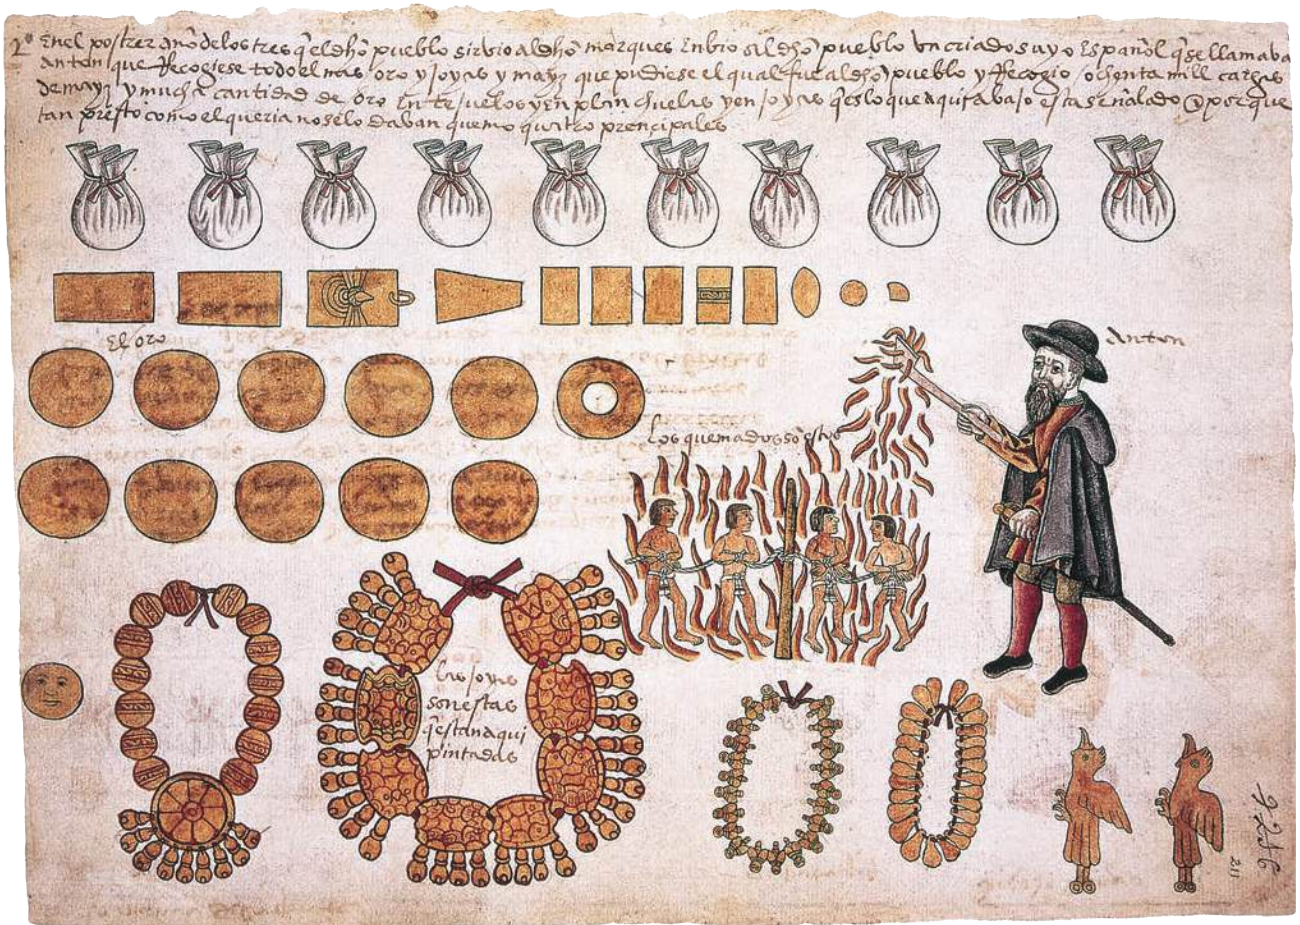 2º Enel postrer año delos tres q̃ el dhõ pueblo sirvio al dhõ marques Enbio al dhõ pueblo un criado suyo Español q̃ se llamaba
Anton que Recogiese todo el mas oro y joyas y mayz que pudiese el qual fue al dhõ pueblo y Recogio ochenta mill cargas
de mayz y mucha cantidad de oro En tejuelos y en planchuelas y en joyas q̃ es lo que aqui abajo esta señalado y porque
tan presto como el queria no se lo daban quemo quatro prencipales
El oro
Anton
los quemados sõ estos
las joyas
son estas
q̃ estan aqui
pintadas
211